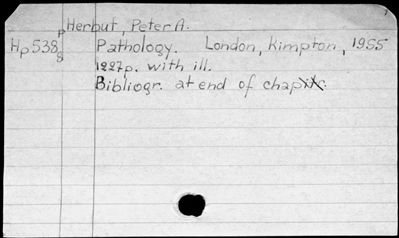 Herbut, Peter A.
Hp538 Pathology. London, Kimpton, 1955
1227p. with ill.
Bibliogr. at end of chap